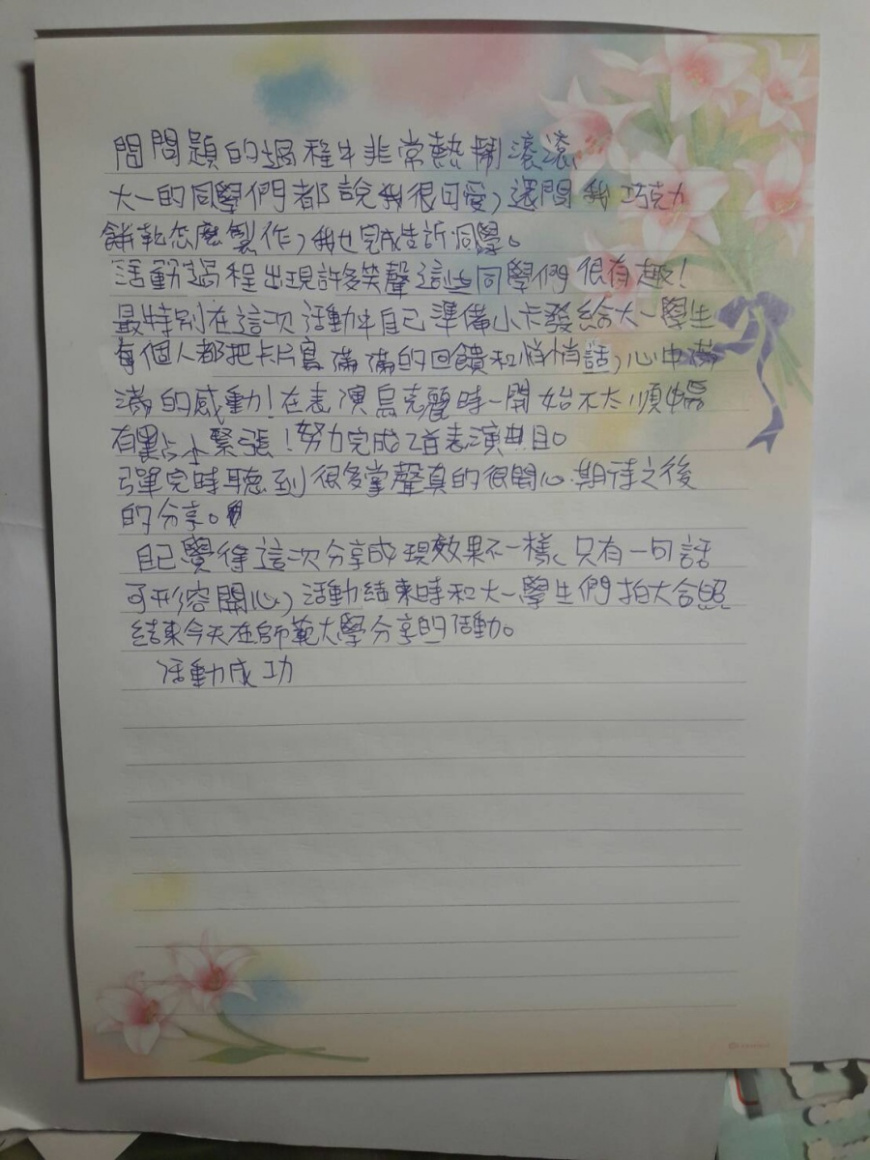 問問題的過程中非常熱鬧滾滾,
大一的同學們都說我很可愛,還問我巧克力
餅乾怎麼製作,我也完成告訴同學。
活動過程出現許多笑聲這些同學們很有趣!
最特別在這次活動中自己準備小卡發給大一學生
每個人都把卡片寫滿滿的回饋和悄悄話,心中滿
滿的感動!在表演烏克麗時一開始不太順暢
有點小緊張!努力完成2首表演曲目。
彈完時聽到很多掌聲真的很開心.期待之後
的分享。
自己覺得這次分享成現效果不一樣、只有一句話
可形容開心,活動結束時和大一學生們拍大合照
結束今天在師範大學分享的活動。
活動成功